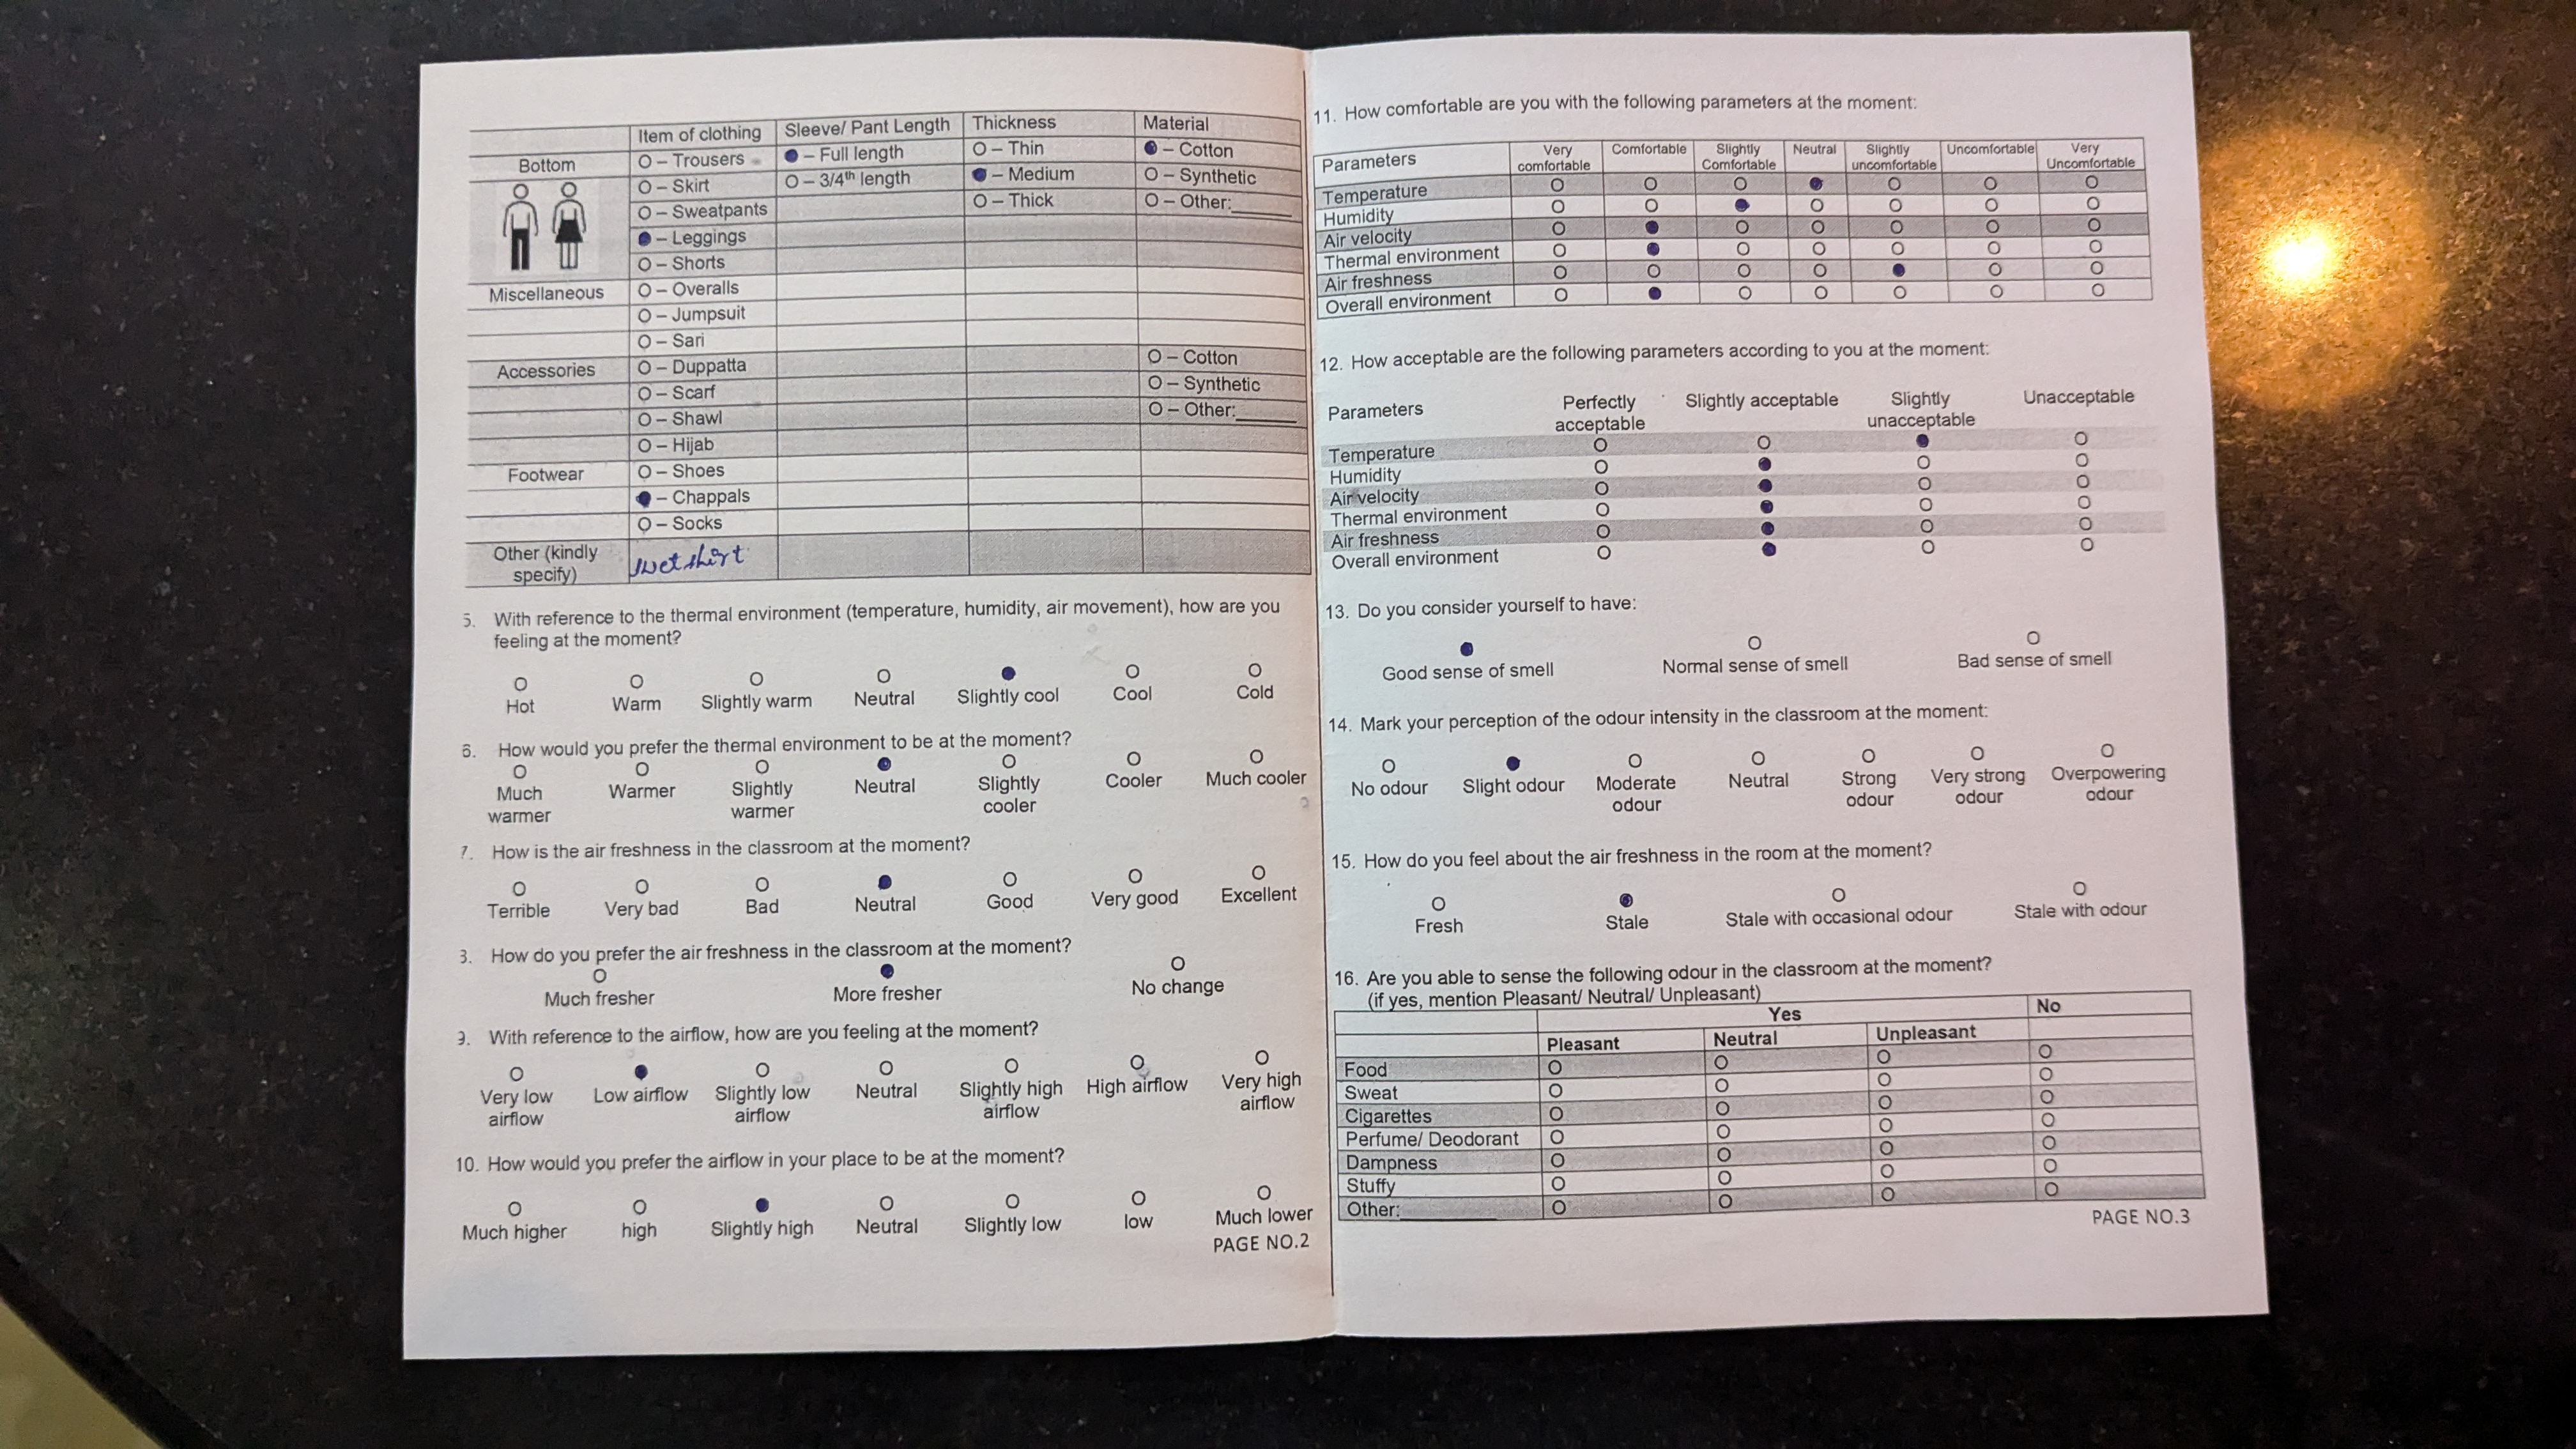 Item of clothing Sleeve/ Pant Length Thickness Material
Bottom O – Trousers ● – Full length O – Thin ● – Cotton
O – Skirt O – 3/4th length ● – Medium O – Synthetic
O – Sweatpants O – Thick O – Other:______
● – Leggings
O – Shorts
Miscellaneous O – Overalls
O – Jumpsuit
O – Sari
Accessories O – Duppatta O – Cotton
O – Scarf O – Synthetic
O – Shawl O – Other:______
O – Hijab
Footwear O – Shoes
● – Chappals
O – Socks
Other (kindly specify) swetshirt
5. With reference to the thermal environment (temperature, humidity, air movement), how are you
feeling at the moment?
O O O O ● O O
Hot Warm Slightly warm Neutral Slightly cool Cool Cold
6. How would you prefer the thermal environment to be at the moment?
O O O ● O O O
Much warmer Warmer Slightly warmer Neutral Slightly cooler Cooler Much cooler
7. How is the air freshness in the classroom at the moment?
O O O ● O O O
Terrible Very bad Bad Neutral Good Very good Excellent
8. How do you prefer the air freshness in the classroom at the moment?
O ● O
Much fresher More fresher No change
9. With reference to the airflow, how are you feeling at the moment?
O ● O O O O O
Very low airflow Low airflow Slightly low airflow Neutral Slightly high airflow High airflow Very high airflow
10. How would you prefer the airflow in your place to be at the moment?
O O ● O O O O
Much higher high Slightly high Neutral Slightly low low Much lower
PAGE NO.2
11. How comfortable are you with the following parameters at the moment:
Parameters Very comfortable Comfortable Slightly Comfortable Neutral Slightly uncomfortable Uncomfortable Very Uncomfortable
Temperature O O O ● O O O
Humidity O O ● O O O O
Air velocity O ● O O O O O
Thermal environment O ● O O O O O
Air freshness O O O O ● O O
Overall environment O ● O O O O O
12. How acceptable are the following parameters according to you at the moment:
Parameters Perfectly acceptable Slightly acceptable Slightly unacceptable Unacceptable
Temperature O O ● O
Humidity O ● O O
Air velocity O ● O O
Thermal environment O ● O O
Air freshness O ● O O
Overall environment O ● O O
13. Do you consider yourself to have:
● O O
Good sense of smell Normal sense of smell Bad sense of smell
14. Mark your perception of the odour intensity in the classroom at the moment:
O ● O O O O O
No odour Slight odour Moderate odour Neutral Strong odour Very strong odour Overpowering odour
15. How do you feel about the air freshness in the room at the moment?
O ● O O
Fresh Stale Stale with occasional odour Stale with odour
16. Are you able to sense the following odour in the classroom at the moment?
(if yes, mention Pleasant/ Neutral/ Unpleasant)
Yes No
Pleasant Neutral Unpleasant
Food O O O O
Sweat O O O O
Cigarettes O O O O
Perfume/ Deodorant O O O O
Dampness O O O O
Stuffy O O O O
Other:__________ O O O O
PAGE NO.3